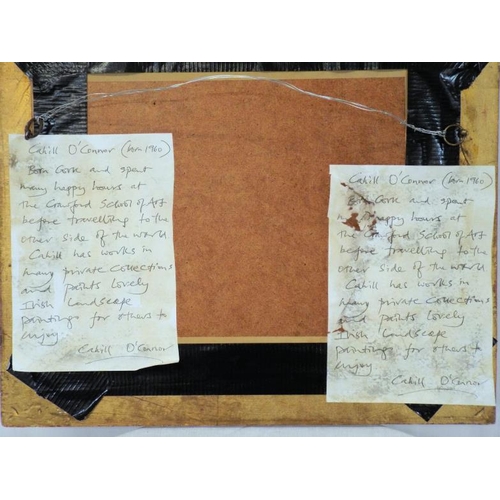 Cahill O'Connor (born 1960)
Born Cork and spent
many happy hours at
The Crawford School of Art
before travelling to the
other side of the world
Cahill has works in
many private collections
and paints lovely
Irish Landscape
paintings for others to
enjoy.
Cahill O'Connor
Cahill O'Connor (born 1960)
Born Cork and spent
many happy hours at
The Crawford School of Art
before travelling to the
other side of the world
Cahill has works in
many private collections
and paints lovely
Irish Landscape
paintings for others to
enjoy.
Cahill O'Connor